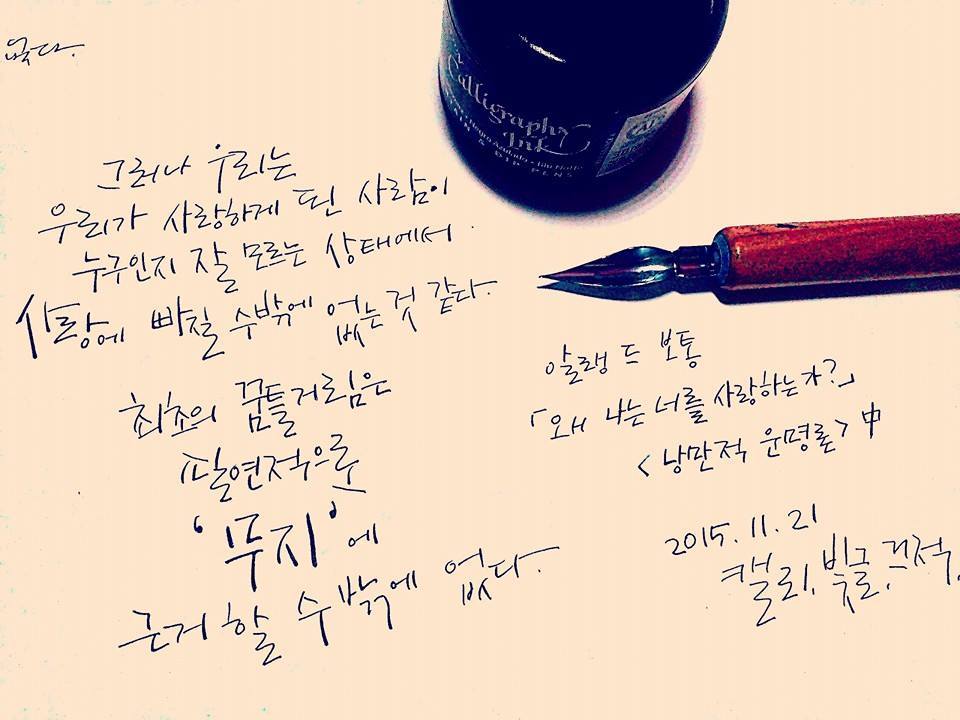 없다.
그러나 우리는
우리가 사랑하게 된 사람이
누구인지 잘 모르는 상태에서
사랑에 빠질 수밖에 없는 것 같다.
최초의 꿈틀거림은
필연적으로
'무지'에
근거할 수밖에 없다.
Calligraphy
Ink
DIP PENS
알랭 드 보통
「왜 나는 너를 사랑하는가?」
<낭만적 운명론> 中
2015. 11. 21
캘리, 빛글, 끄적.